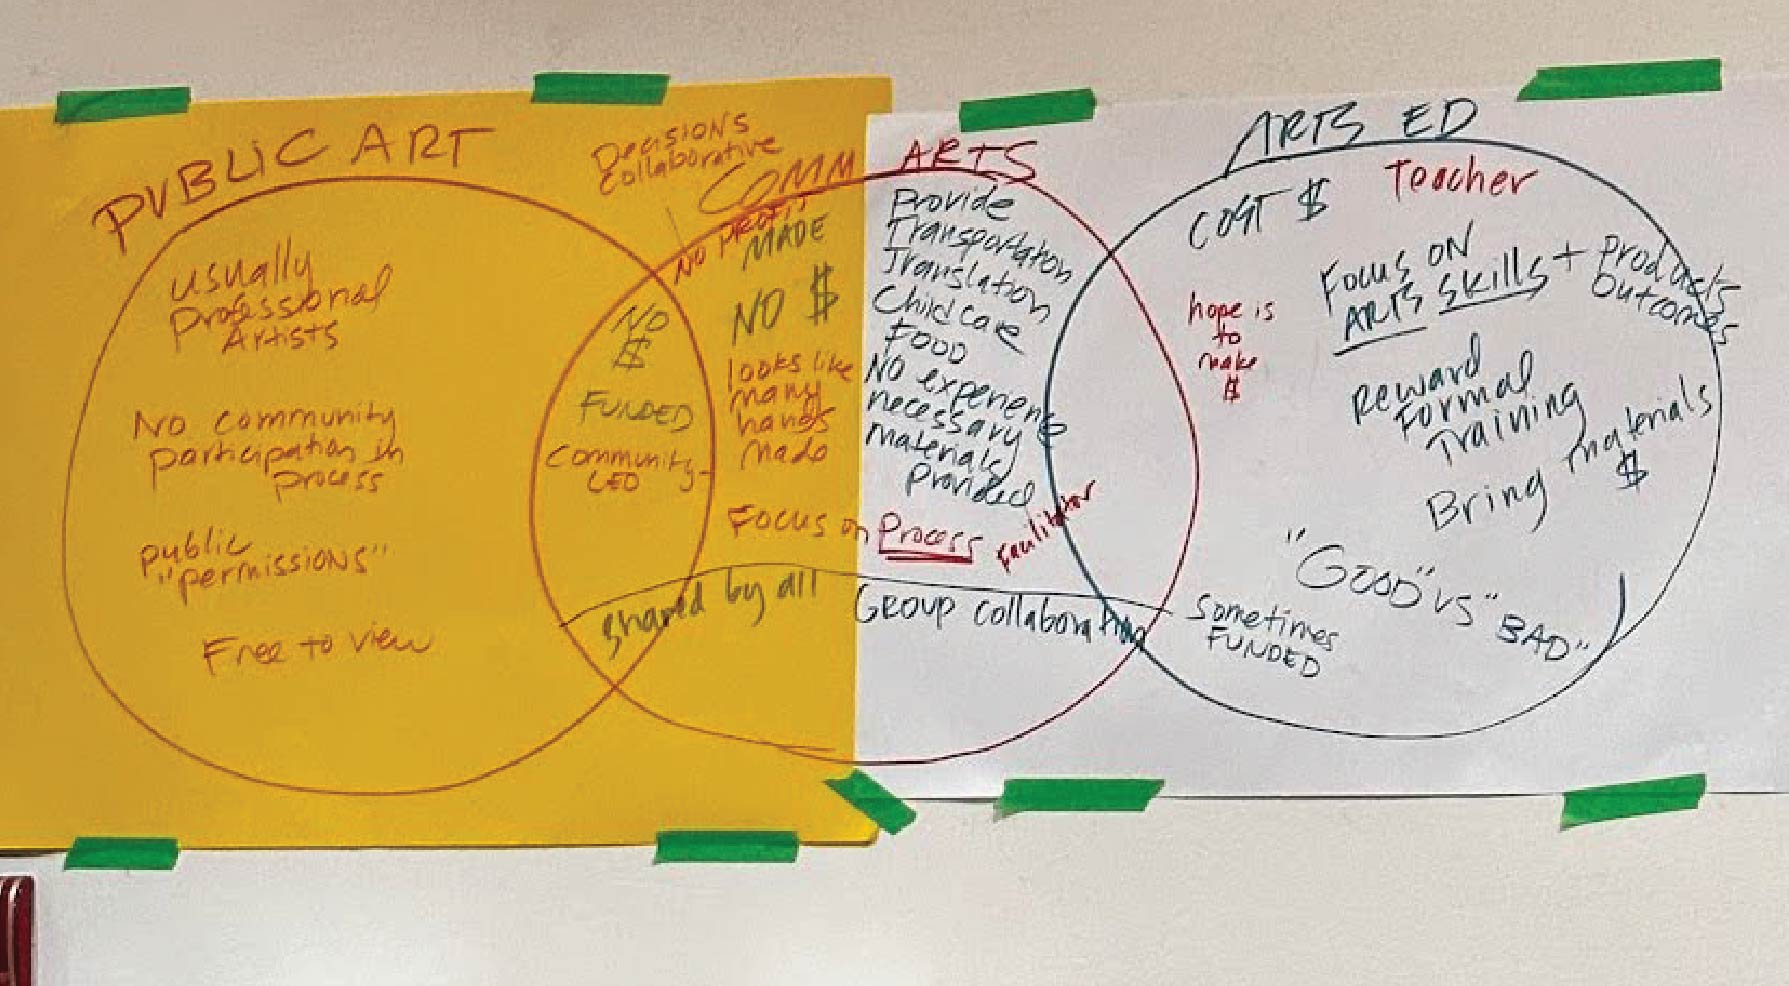 PUBLIC ART
usually
professional
Artists
No community
participation in
process
public
"permissions"
Free to view
Decisions
collaborative
NO
$
FUNDED
Community-
LED
COMM ARTS
NO PROFIT
MADE
NO $
looks like
many
hands
made
Focus on Process
Provide
Transportation
Translation
Childcare
Food
No experience
necessary
materials
provided
Facilitator
shared by all
GROUP collaboration
Sometimes
FUNDED
ARTS ED
Teacher
COST $
hope is
to
make
$
Focus ON
ARTS SKILLS + products
outcomes
Reward
Formal
Training
Bring materials
$
"GOOD" vs "BAD"